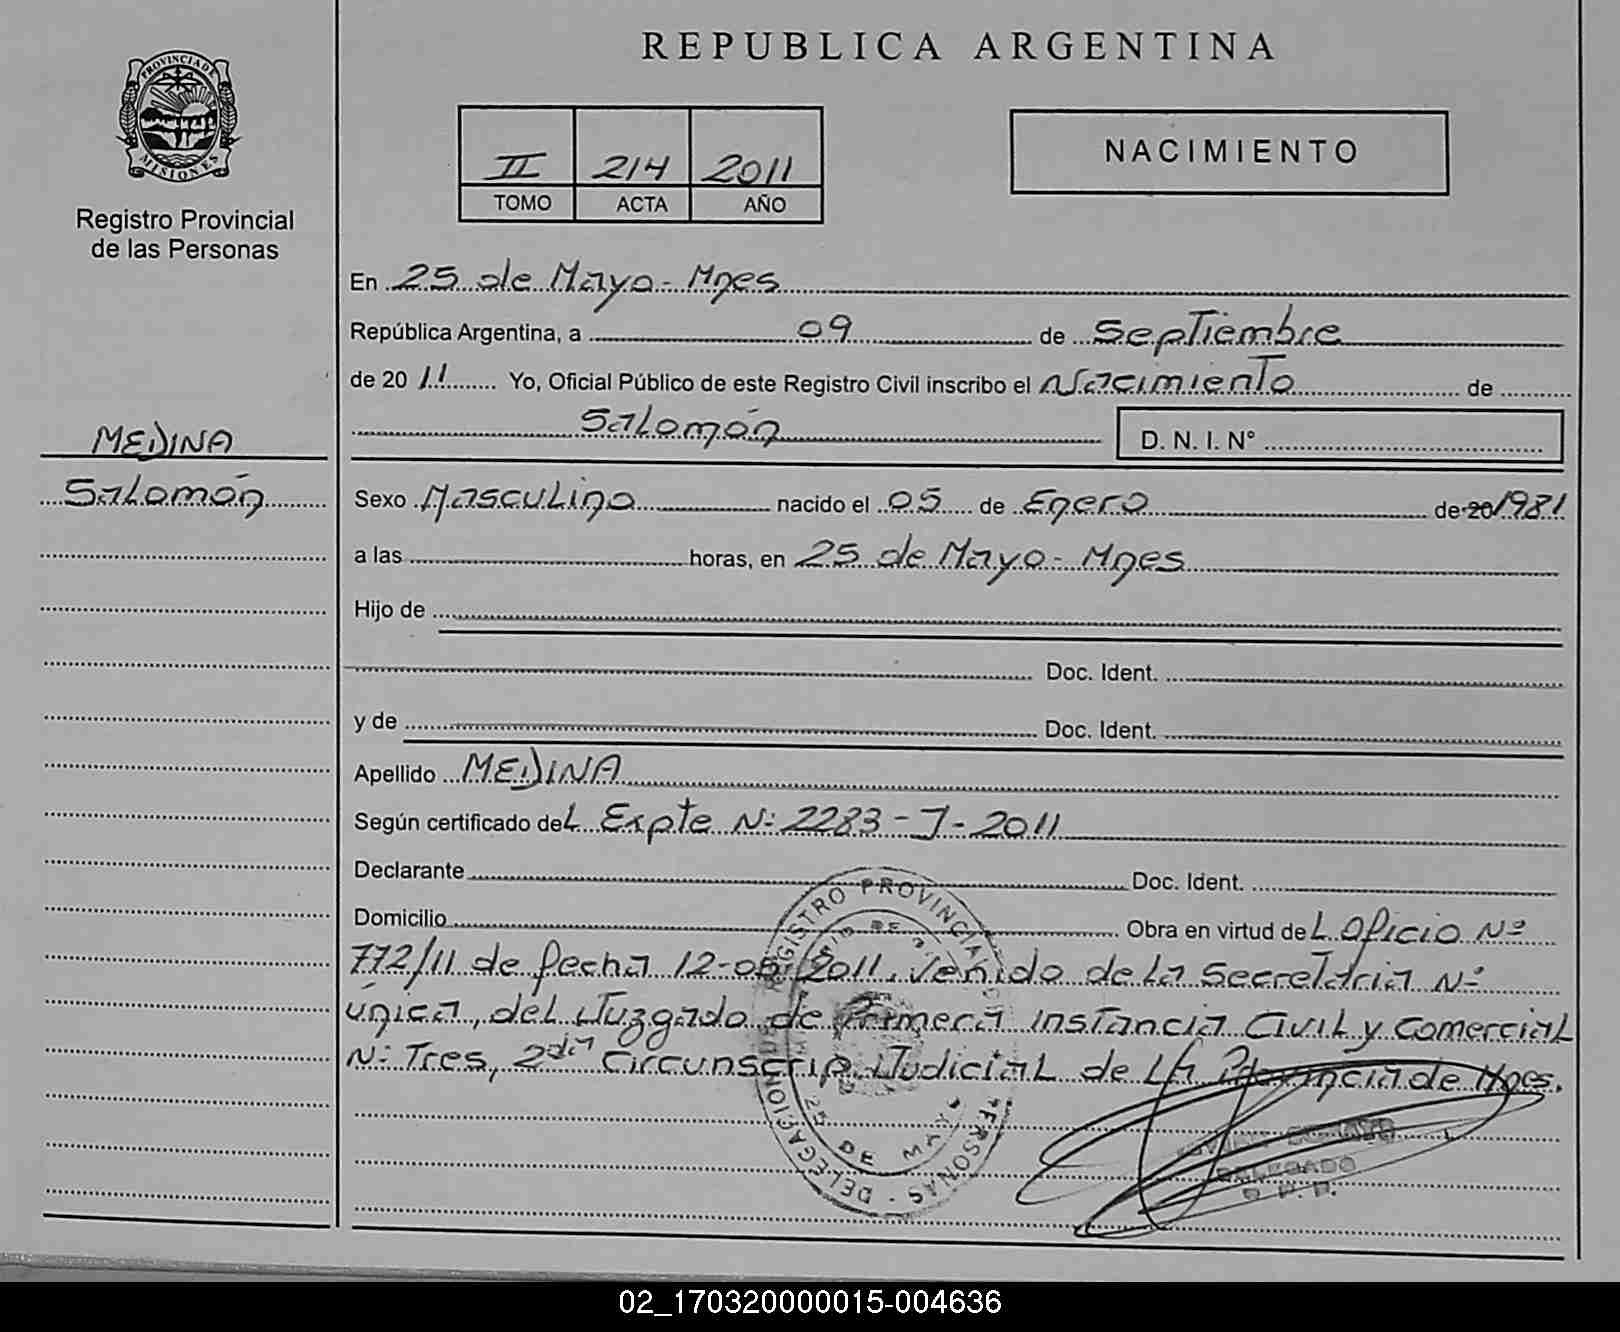 REPUBLICA ARGENTINA
PROVINCIA DE
MISIONES
Registro Provincial
de las Personas
II 214 2011
TOMO ACTA AÑO
NACIMIENTO
En 25 de Mayo - Mnes
República Argentina, a 09 de Septiembre
de 2011 Yo, Oficial Público de este Registro Civil inscribo el Nacimiento de
Salomón D. N. I. N°
MEDINA
Salomón
Sexo Masculino nacido el 05 de Enero de 20 1981
a las horas, en 25 de Mayo - Mnes
Hijo de
Doc. Ident.
y de Doc. Ident.
Apellido MEDINA
Según certificado del Expte Nº 2283 - J - 2011
Declarante Doc. Ident.
Domicilio Obra en virtud del Oficio Nº
772/11 de fecha 12- /2011, venido de la Secretaria Nº
única, del Juzgado de Primera instancia Civil y Comercial
Nº Tres, 2da Circunscrip. Judicial de la Provincia de Mnes.
REGISTRO PROVINCIAL PERSONAS - DELEGACION
25 DE MAYO
DELEGADO
02_170320000015-004636